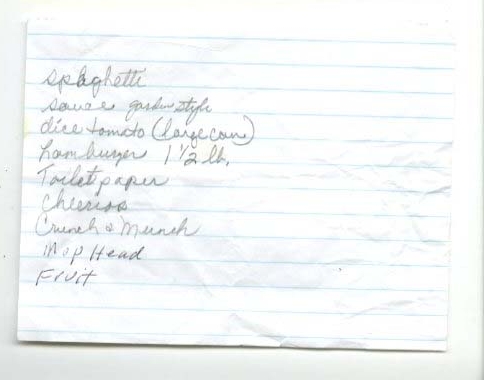 spaghetti
sauce garden style
dice tomato (large can)
hamburger 1 1/2 lb.
Toilet paper
Cheerios
Crunch & Munch
Mop Head
Fruit